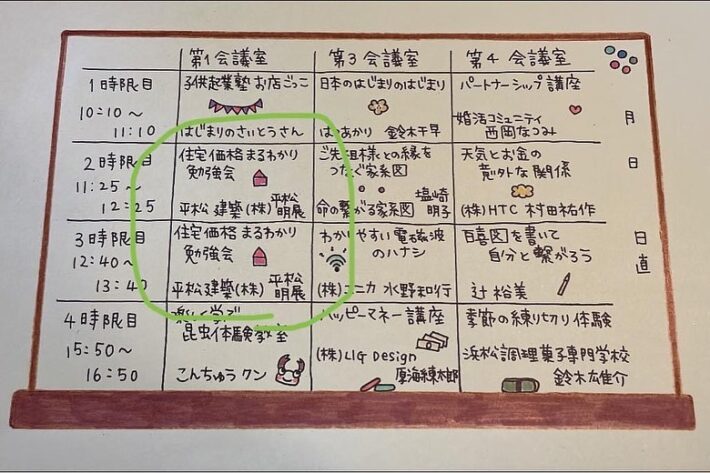 第1会議室 第3会議室 第4会議室
1時限目 子供起業塾 お店ごっこ 日本のはじまりのはじまり パートナーシップ講座
10:10～ 婚活コミュニティ 月
11:10 はじまりのさいとうさん はつあかり 鈴木千早 西岡なつみ
2時限目 住宅価格まるわかり ご先祖様との縁を 天気とお金の 日
11:25～ 勉強会 つなぐ家系図 意外な関係
12:25 平松建築(株) 平松明展 命の繋がる家系図 塩崎明子 (株)HTC 村田祐作
3時限目 住宅価格まるわかり わかりやすい電磁波 百喜図を書いて 日直
12:40～ 勉強会 のハナシ 自分と繋がろう
13:40 平松建築(株) 平松明展 (株)ユニカ 水野和行 辻 裕美
4時限目 楽しく学ぶ ハッピーマネー講座 季節の練りきり体験
15:50～ 昆虫体験教室 (株)LIG Design 浜松調理菓子専門学校
16:50 こんちゅうクン 厚海練太郎 鈴木